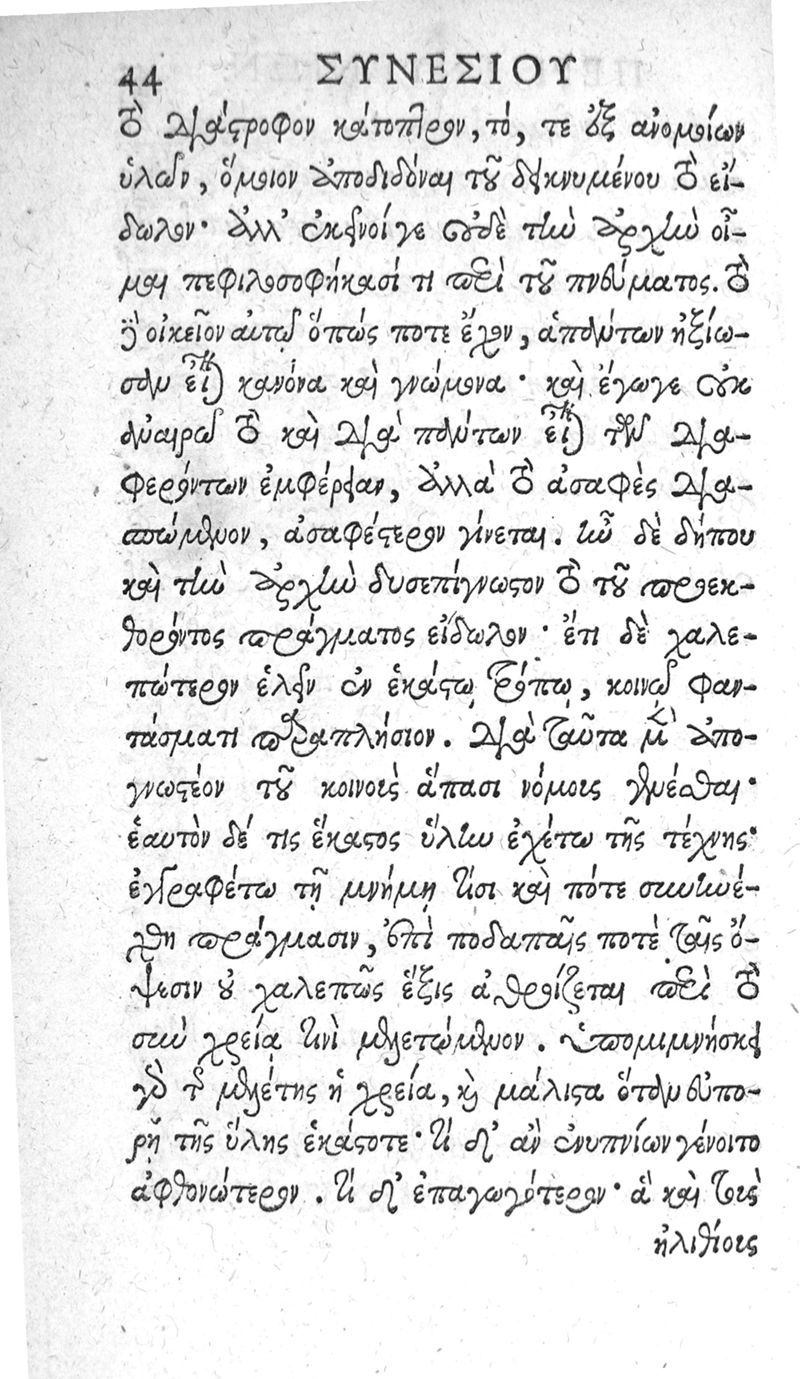 44 ΣΥΝΕΣΙΟΥ
τὸ διάστροφον κάτοπτρον, τό, τε ἐξ ἀνομοίων
ὑλῶν, ὅμοιον ἀποδιδόναι τοῦ δεικνυμένου τὸ εἴ-
δωλον· ἀλλ' ἐκεῖνοί γε οὐδὲ τὴν ἀρχὴν οἶ-
μαι πεφιλοσοφήκασί τι περὶ τοῦ πνεύματος. τὸ
γὰρ οἰκεῖον αὐτῷ ὅπώς ποτε ἔχον, ἁπάντων ἠξίω-
σαν εἶναι κανόνα καὶ γνώμονα· καὶ ἔγωγε οὐκ
ἀναιρῶ τὸ καὶ διὰ πάντων εἶναι τῶν δια-
φερόντων ἐμφέρειαν, ἀλλὰ τὸ ἀσαφὲς δια-
σπώμενον, ἀσαφέστερον γίνεται. ἦν δὲ δήπου
καὶ τὴν ἀρχὴν δυσεπίγνωστον τὸ τοῦ προεκ-
θορόντος πράγματος εἴδωλον· ἔτι δὲ χαλε-
πώτερον ἑλεῖν ἐν ἑκάστῳ τρόπῳ, κοινῷ φαν-
τάσματι παραπλήσιον. διὰ ταῦτα μὲν ἀπο-
γνωστέον τοῦ κοινοὶς ἅπασι νόμοις γενέσθαι·
ἑαυτὸν δέ τις ἕκαστος ὕλην ἐχέτω τῆς τέχνης·
ἐγγραφέτω τῇ μνήμῃ τίσι καὶ πότε συνηνέ-
χθη πράγμασιν, ἐπὶ ποδαπαῖς ποτὲ ταῖς ὄ-
ψεσιν οὐ χαλεπῶς ἕξις ἀθροίζεται περὶ τὸ
σὺν χρείᾳ τινὶ μελετώμενον. ὑπομιμνήσκει
γὰρ τῆς μελέτης ἡ χρεία, καὶ μάλιστα ὅταν εὐπο-
ρῇ τῆς ὕλης ἑκάστοτε· τί δ' ἂν ἐνυπνίων γένοιτο
ἀφθονώτερον. τί δ' ἐπαγωγότερον· ἃ καὶ τοὺς
ἠλιθίους